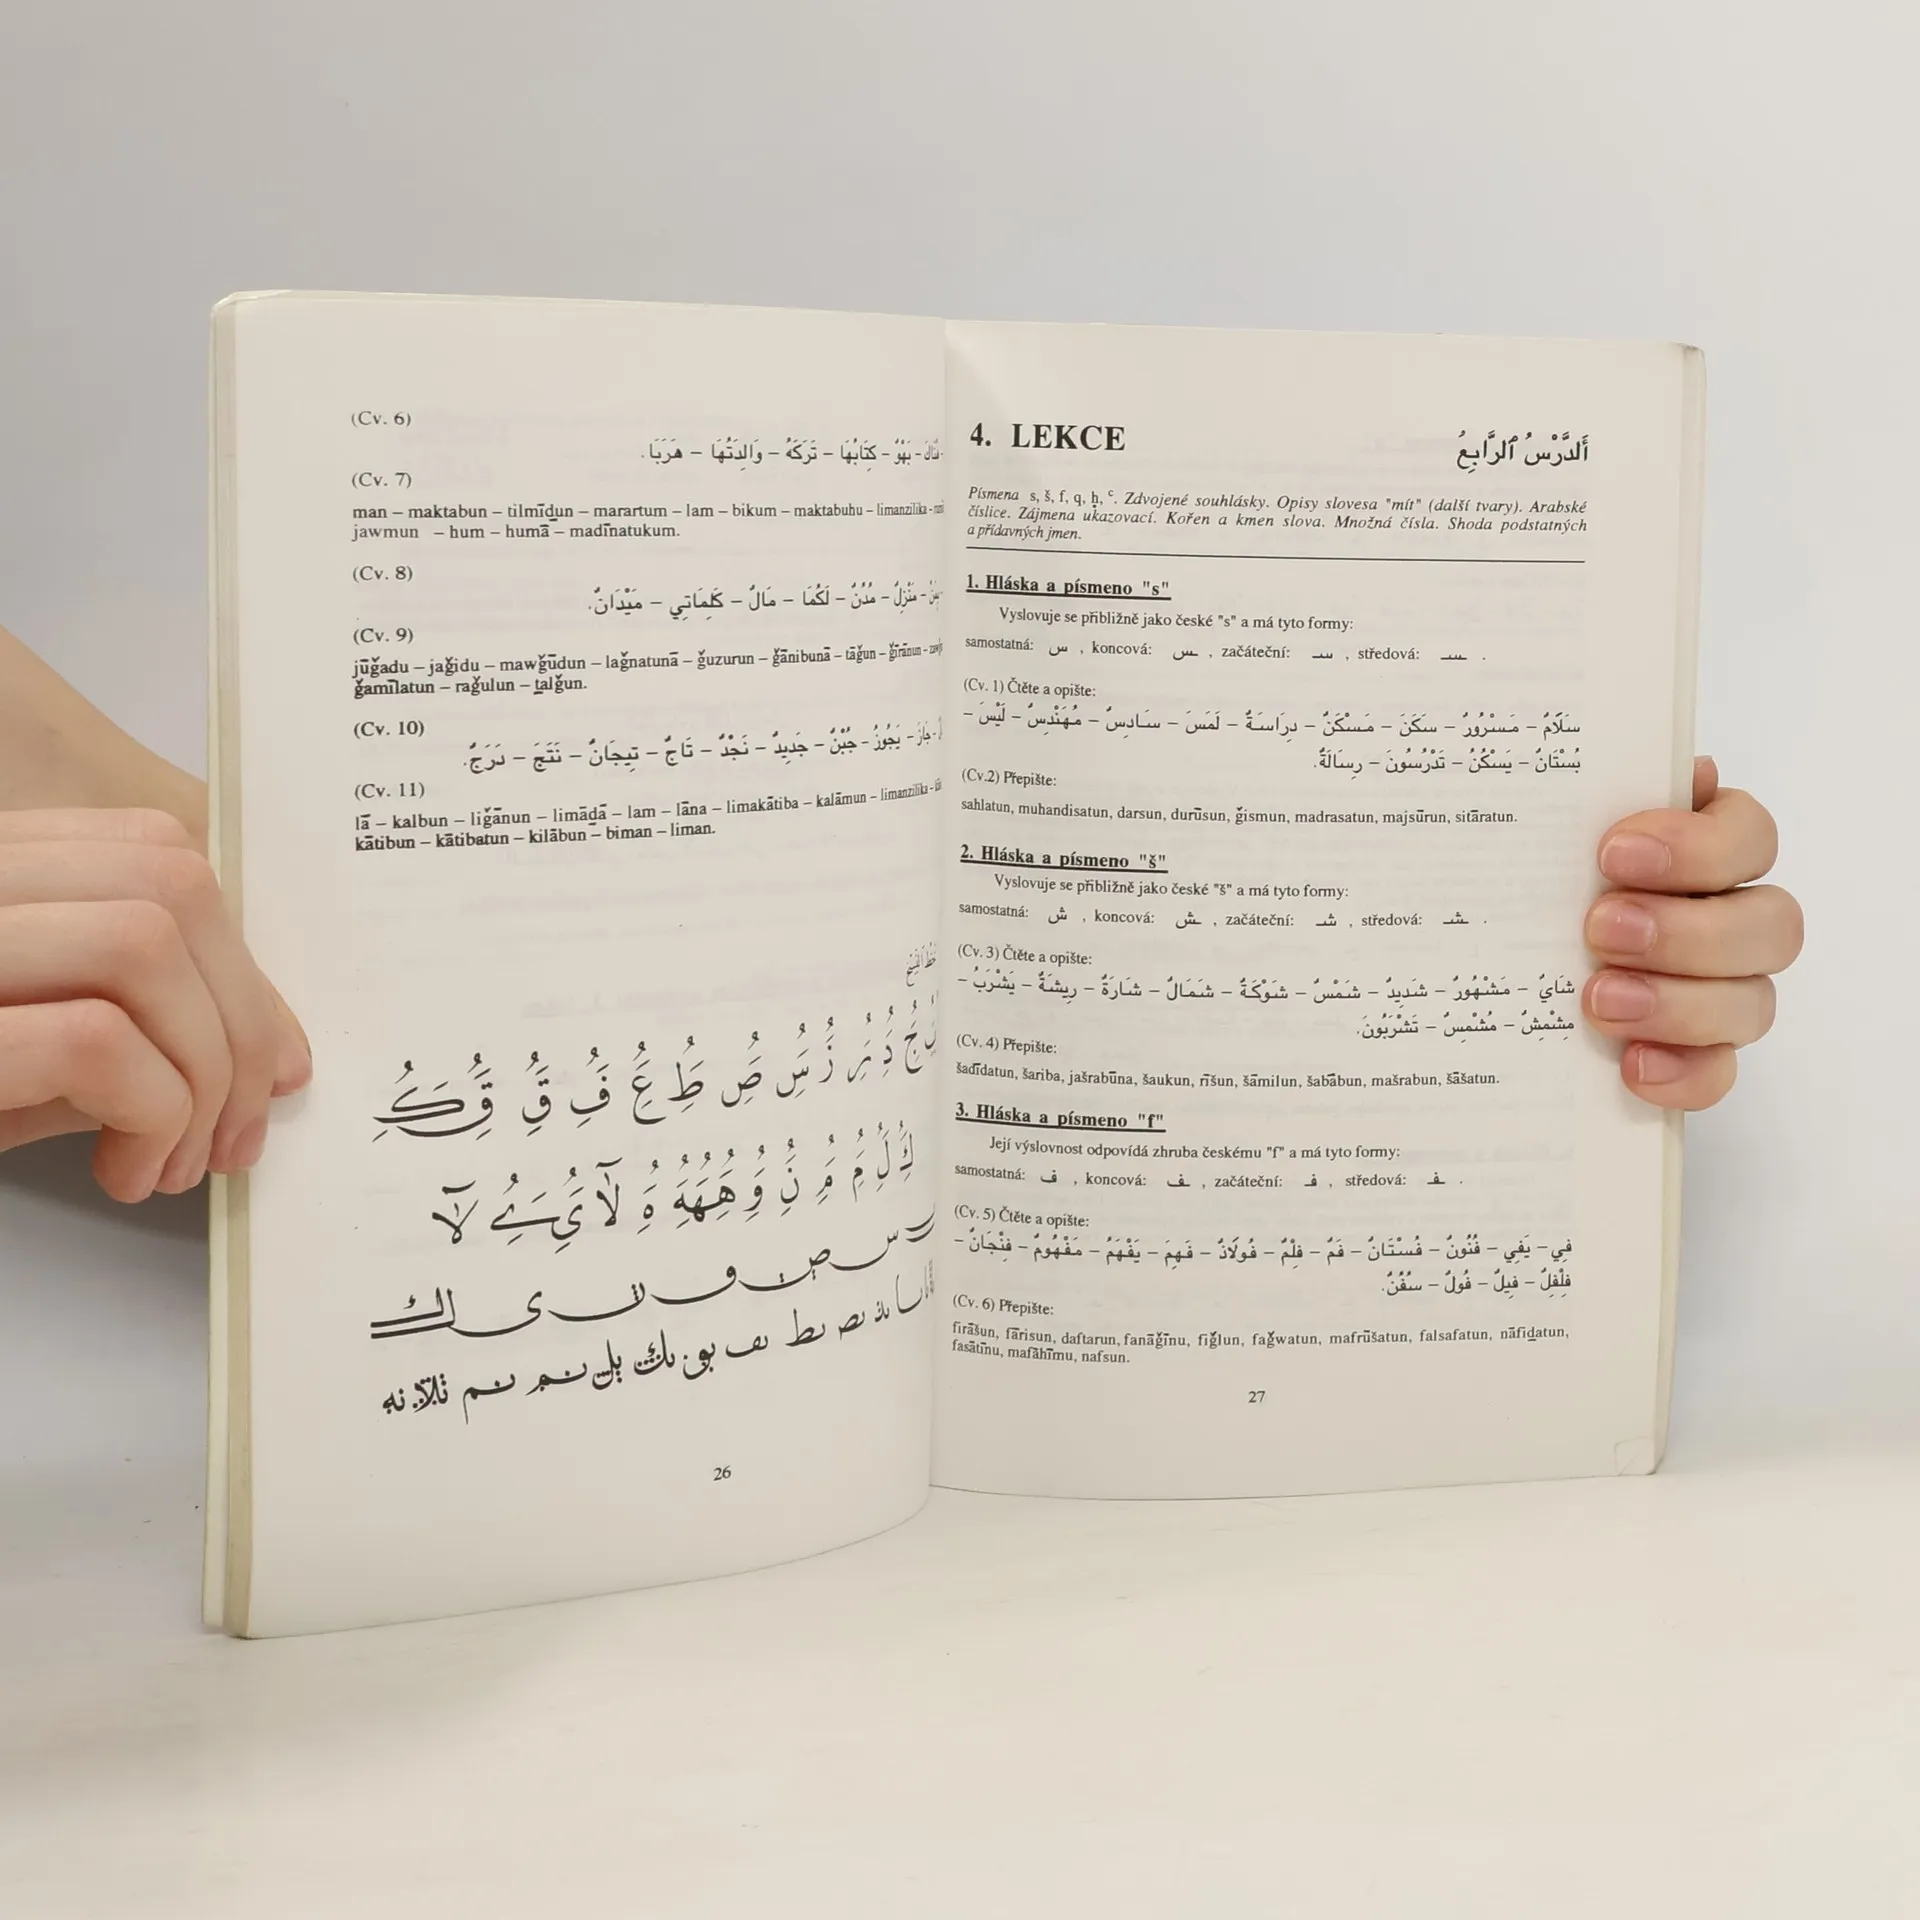 (Cv. 6)
بَهْوٌ – كِتَابُهَا – تَرَكَهُ – وَالِدَتُهَا – هَرَبَا.
(Cv. 7)
man – maktabun – tilmīḏun – marartum – lam – bikum – maktabuhu – limanzilika –
jawmun – hum – humā – madīnatukum.
(Cv. 8)
مَنْزِلٌ – مُدُنٌ – لَكُمَا – مَالٌ – كَلِمَاتِي – مَيْدَانٌ.
(Cv. 9)
jūǧadu – jaǧidu – mawǧūdun – laǧnatunā – ǧuzurun – ǧānibunā – tāǧun – ǧīrānun –
ǧamīlatun – raǧulun – ṯalǧun.
(Cv. 10)
جَازَ – يَجُوزُ – جُبْنٌ – جَدِيدٌ – نَجْدٌ – تَاجٌ – تِيجَانٌ – نَتَجَ – دَرَجٌ.
(Cv. 11)
lā – kalbun – liǧānun – limāḏā – lam – lāna – limakātiba – kalāmun – limanzilika –
kātibun – kātibatun – kilābun – biman – liman.
26
4. LEKCE
أَلدَّرْسُ ٱلرَّابِعُ
Písmena s, š, f, q, ḥ, ᶜ. Zdvojené souhlásky. Opisy slovesa "mít" (další tvary). Arabské
číslice. Zájmena ukazovací. Kořen a kmen slova. Množná čísla. Shoda podstatných
a přídavných jmen.
1. Hláska a písmeno "s"
Vyslovuje se přibližně jako české "s" a má tyto formy:
samostatná: س , koncová: ـس , začáteční: سـ , středová: ـسـ .
(Cv. 1) Čtěte a opište:
سَلَامٌ – مَسْرُورٌ – سَكَنَ – مَسْكَنٌ – دِرَاسَةٌ – لَمَسَ – سَادِسٌ – مُهَنْدِسٌ – لَيْسَ –
بُسْتَانٌ – يَسْكُنُ – تَدْرُسُونَ – رِسَالَةٌ.
(Cv.2) Přepište:
sahlatun, muhandisatun, darsun, durūsun, ǧismun, madrasatun, majsūrun, sitāratun.
2. Hláska a písmeno "š"
Vyslovuje se přibližně jako české "š" a má tyto formy:
samostatná: ش , koncová: ـش , začáteční: شـ , středová: ـشـ .
(Cv. 3) Čtěte a opište:
شَايٌ – مَشْهُورٌ – شَدِيدٌ – شَمْسٌ – شَوْكَةٌ – شَمَالٌ – شَارَةٌ – رِيشَةٌ – يَشْرَبُ –
مِشْمِشٌ – مُشْمِسٌ – تَشْرَبُونَ.
(Cv. 4) Přepište:
šadīdatun, šariba, jašrabūna, šaukun, rīšun, šāmilun, šabābun, mašrabun, šāšatun.
3. Hláska a písmeno "f"
Její výslovnost odpovídá zhruba českému "f" a má tyto formy:
samostatná: ف , koncová: ـف , začáteční: فـ , středová: ـفـ .
(Cv. 5) Čtěte a opište:
فِي – يَفِي – فُنُونٌ – فُسْتَانٌ – فَمٌ – فِلْمٌ – فُولَاذٌ – فَهِمَ – يَفْهَمُ – مَفْهُومٌ – فِنْجَانٌ –
فِلْفِلٌ – فِيلٌ – فُولٌ – سُفُنٌ.
(Cv. 6) Přepište:
firāšun, fārisun, daftarun, fanāǧīnu, fiǧlun, faǧwatun, mafrūšatun, falsafatun, nāfiḏatun,
fasātīnu, mafāhīmu, nafsun.
27